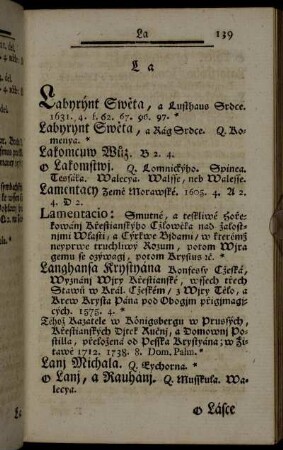 La
139
La
Labyrýnt Swěta, a Lusthaus Srdce.
1631. 4. s. 62. 67. 96. 97. *
Labyrynt Swěta, a Rág Srdce. Q. Ko-
menya. *
Lakomcuw Wůz. B 2. 4.
O Lakomstwj. Q. Lomnického. Spinea.
Tesáka. Walecya. Walsse, neb Walesse.
Lamentacy Země Morawské. 1605. 4. A 2.
4. D 2.
Lamentacio: Smutné, a teskliwé Hoře-
kowánj Křestianského Čzlowěka nad žalost-
njmi Wlasti, a Cýrkwe Bjdami, w kteremž
neyprwe truchliwý Rozum, potom Wjra
gemu se ozýwagj, potom Krystus ꝛc. *
Langhansa Krystyána Konfessy Cžeská,
Wyznánj Wjry Křestianské, wssech třech
Stawů w Král. Cžeském, z Wjry Tělo, a
Krew Krysta Pána pod Obogjm přigjmagj-
cých. 1575. 4. *
Téhož Kazatele w Königsbergu w Prusých,
Křestianských Djtek Ručnj, a Domownj Po-
stilla, přeložená od Pesska Krystyána; w Ži-
tawě 1712. 1738. 8. Dom. Palm. *
Lanj Michala. Q. Eychorna. *
O Lanj, a Rauhánj. Q. Musskula. Wa-
lecya.
O Lásce